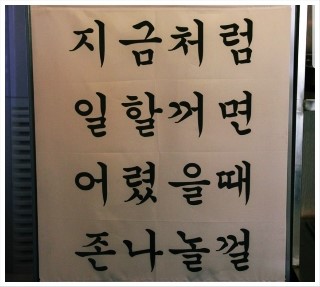 지금처럼
일할꺼면
어렸을때
존나놀껄